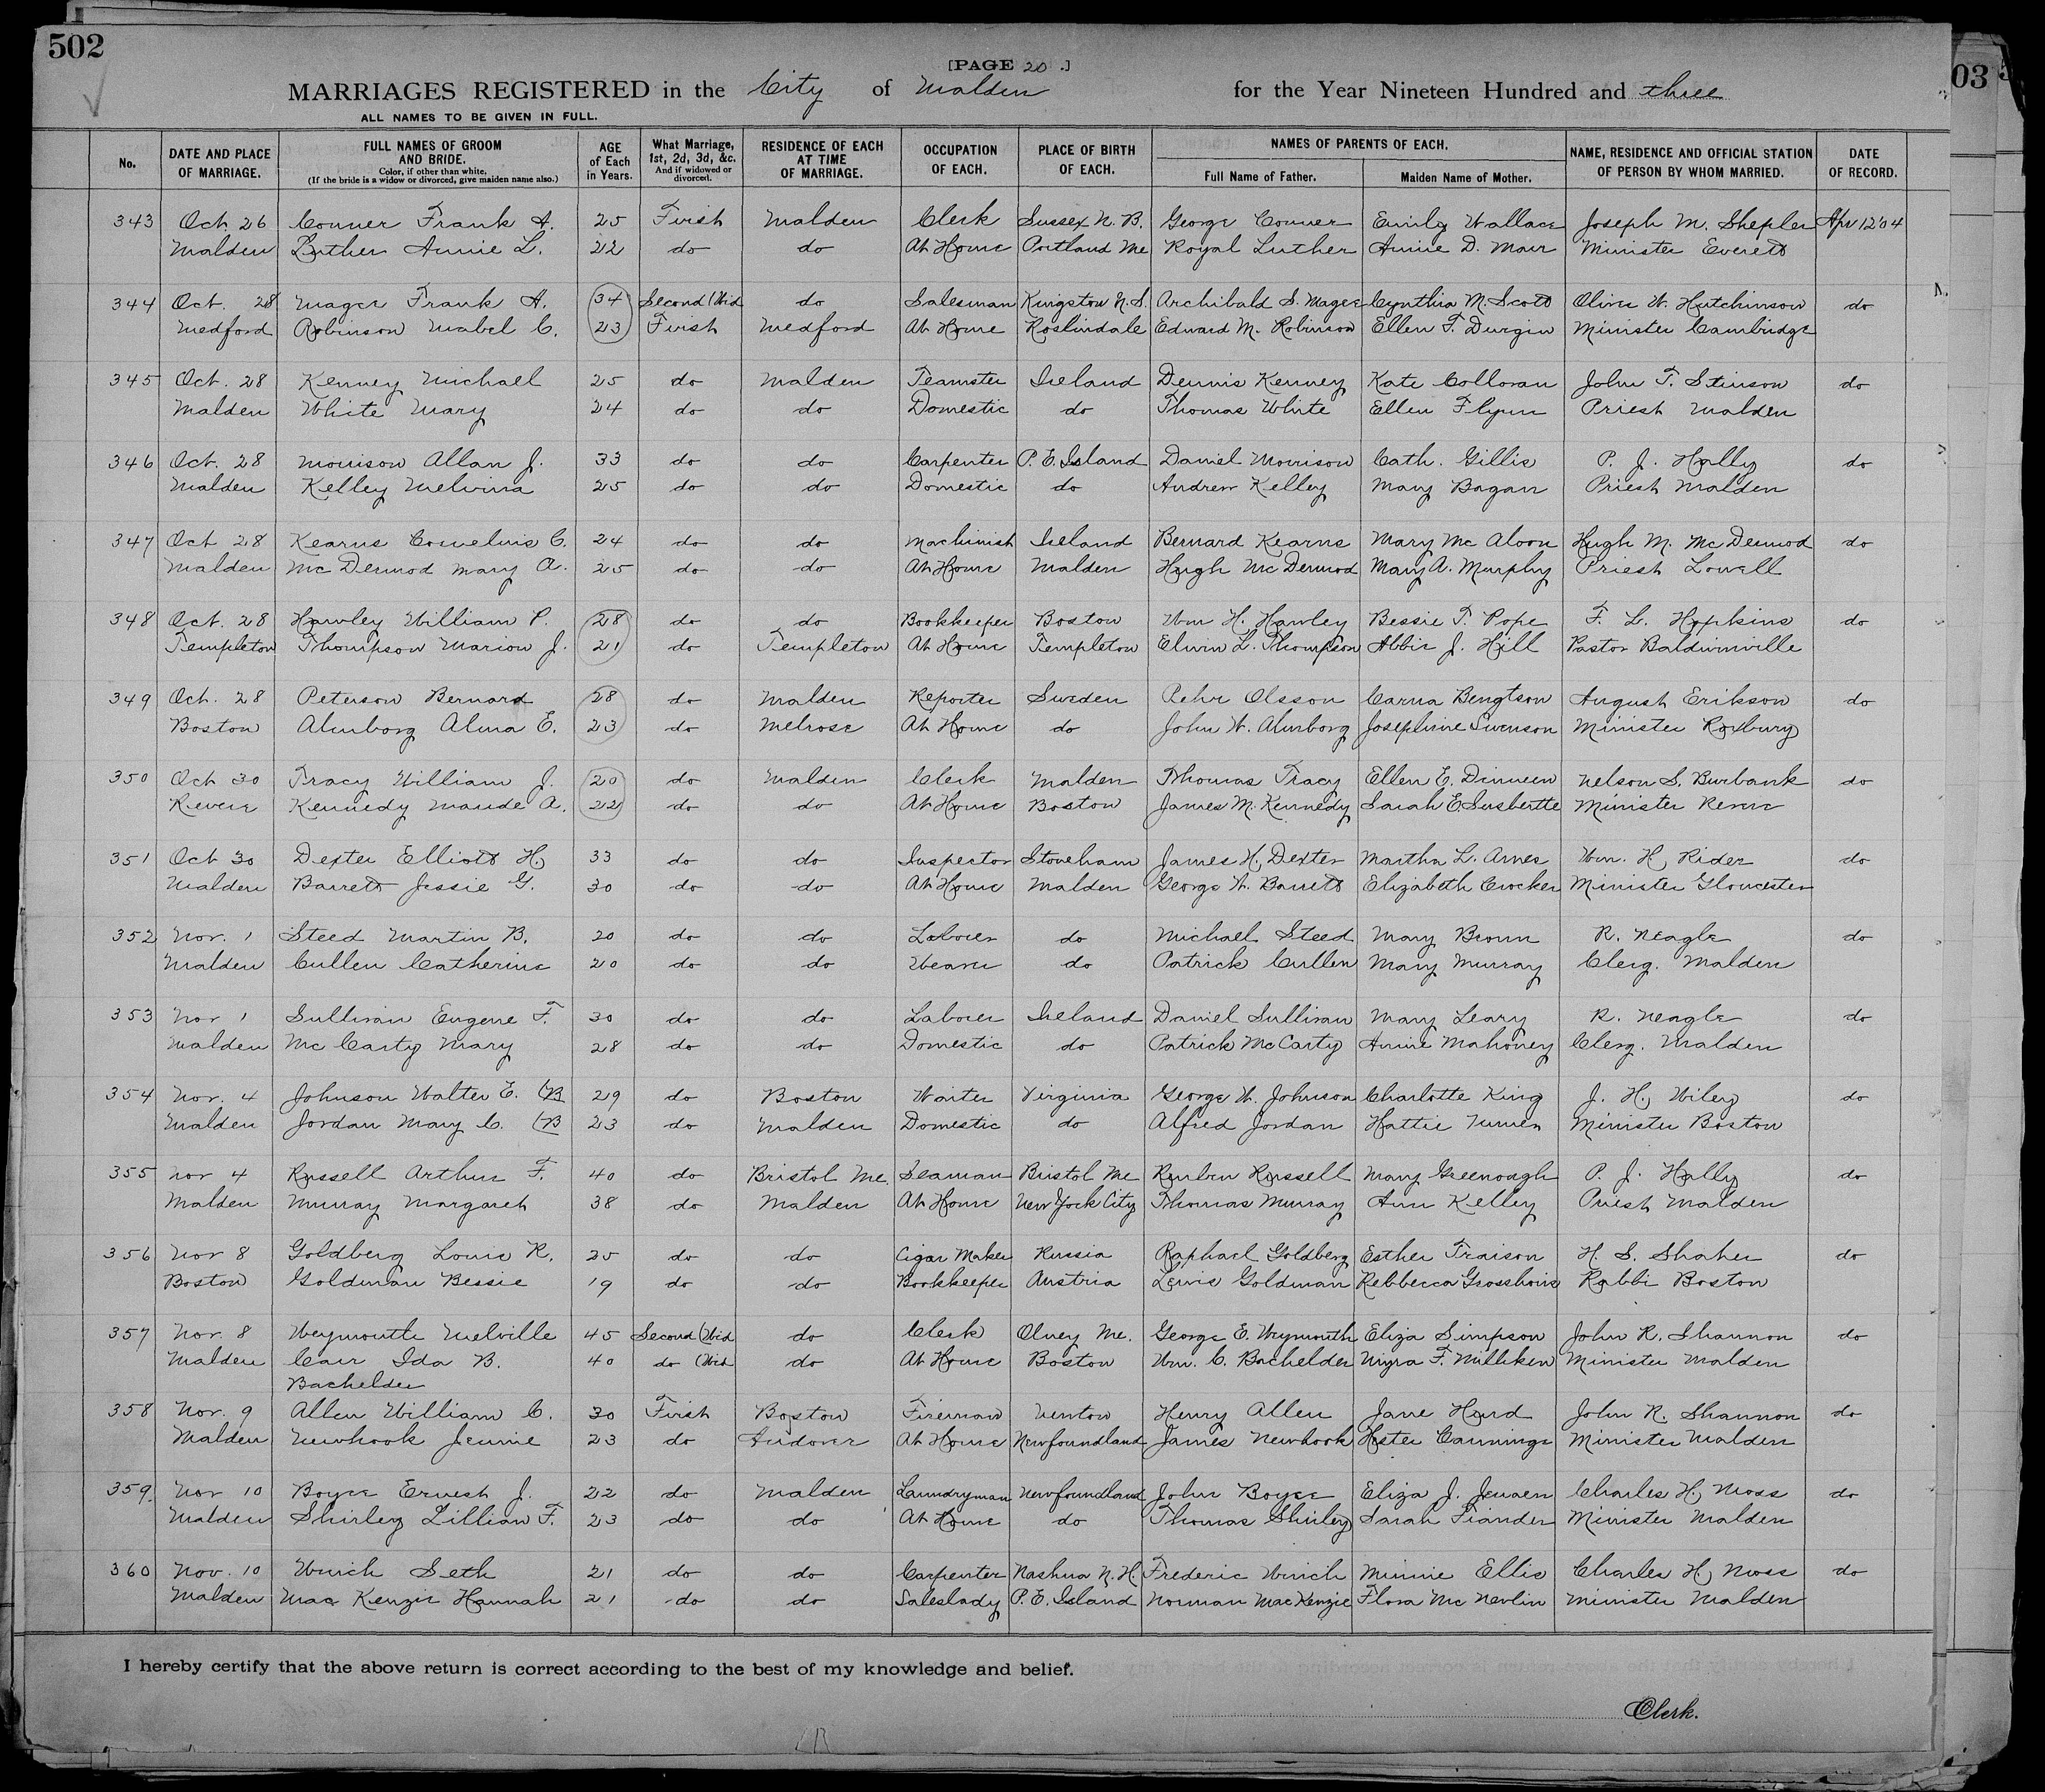 502
03
[PAGE 20.]
MARRIAGES REGISTERED in the City of Malden for the Year Nineteen Hundred and three
ALL NAMES TO BE GIVEN IN FULL.
No. DATE AND PLACE OF MARRIAGE. FULL NAMES OF GROOM AND BRIDE. Color, if other than white. (If the bride is a widow or divorced, give maiden name also.) AGE of Each in Years. What Marriage, 1st, 2d, 3d, &c. And if widowed or divorced. RESIDENCE OF EACH AT TIME OF MARRIAGE. OCCUPATION OF EACH. PLACE OF BIRTH OF EACH. NAMES OF PARENTS OF EACH. Full Name of Father. Maiden Name of Mother. NAME, RESIDENCE AND OFFICIAL STATION OF PERSON BY WHOM MARRIED. DATE OF RECORD.
343 Oct. 26 Conner Frank A. 25 First Malden Clerk Sussex N. B. George Conner Emily Wallace Joseph M. Shepler Apr 12'04
Malden Luther Annie L. 22 do do At Home Portland Me Royal Luther Annie D. Marr Minister Everett
344 Oct. 28 Magee Frank A. 34 Second (Wid do Salesman Kingston N. S. Archibald S. Magee Cynthia M. Scott Oliver W. Hutchinson do
Medford Robinson Mabel C. 23 First Medford At Home Roslindale Edward M. Robinson Ellen F. Durgin Minister Cambridge
345 Oct. 28 Kenney Michael 25 do Malden Teamster Ireland Dennis Kenney Kate Colloran John F. Stinson do
Malden White Mary 24 do do Domestic do Thomas White Ellen Flynn Priest Malden
346 Oct. 28 Morrison Allan J. 33 do do Carpenter P. E. Island Daniel Morrison Cath. Gillis P. J. Hally do
Malden Kelley Melvina 25 do do Domestic do Andrew Kelley Mary Bagan Priest Malden
347 Oct 28 Kearns Cornelius C. 24 do do Machinist Ireland Bernard Kearns Mary Mc Aloon Hugh M. Mc Dermod do
Malden Mc Dermod Mary A. 25 do do At Home Malden Hugh Mc Dermod Mary A. Murphy Priest Lowell
348 Oct. 28 Hawley William P. 28 do do Bookkeeper Boston Wm H. Hawley Bessie T. Pope F. L. Hopkins do
Templeton Thompson Marion J. 21 do Templeton At Home Templeton Elwin L. Thompson Abbie J. Hill Pastor Baldwinville
349 Oct. 28 Peterson Bernard 28 do Malden Reporter Sweden Pehr Olsson Carna Bengtson August Erikson do
Boston Almborg Alma E. 23 do Melrose At Home do John W. Almborg Josephine Swenson Minister Roxbury
350 Oct 30 Tracy William J. 20 do Malden Clerk Malden Thomas Tracy Ellen E. Dinneen Nelson S. Burbank do
Revere Kennedy Maude A. 22 do do At Home Boston James M. Kennedy Sarah E. Minister Revere
351 Oct 30 Dexter Elliott H. 33 do do Inspector Stoneham James H. Dexter Martha L. Ames Wm. H. Rider do
Malden Barrett Jessie G. 30 do do At Home Malden George W. Barrett Elizabeth Crocker Minister Gloucester
352 Nov. 1 Steed Martin B. 20 do do Laborer do Michael Steed Mary Brown R. Neagle do
Malden Cullen Catherine 20 do do Weaver do Patrick Cullen Mary Murray Clerg. Malden
353 Nov 1 Sullivan Eugene F. 30 do do Laborer Ireland Daniel Sullivan Mary Leary R. Neagle do
Malden Mc Carty Mary 28 do do Domestic do Patrick McCarty Annie Mahoney Clerg. Malden
354 Nov. 4 Johnson Walter E. (B 29 do Boston Waiter Virginia George W. Johnson Charlotte King J. H. Wiley do
Malden Jordan Mary C. (B 23 do Malden Domestic do Alfred Jordan Hattie Turner Minister Boston
355 Nov 4 Russell Arthur F. 40 do Bristol Me. Seaman Bristol Me Reuben Russell Mary Greenough P. J. Hally do
Malden Murray Margaret 38 do Malden At Home New York City Thomas Murray Ann Kelley Priest Malden
356 Nov 8 Goldberg Louis R. 25 do do Cigar Maker Russia Raphael Goldberg Esther Fraison H. S. Shaher do
Boston Goldman Bessie 19 do do Bookkeeper Austria Lewis Goldman Rebbecca Rabbi Boston
357 Nov. 8 Weymouth Melville 45 Second (Wid do Clerk Olney Me. George E. Weymouth Eliza Simpson John R. Shannon do
Malden Carr Ida B. 40 do (Wid do At Home Boston Wm. C. Bachelder F. Milliken Minister Malden
Bachelder
358 Nov. 9 Allen William C. 30 First Boston Fireman Henry Allen Jane Hurd John R. Shannon do
Malden Newhook Jennie 23 do Andover At Home Newfoundland James Newhook Hester Cannings Minister Malden
359. Nov 10 Boyce Ernest J. 22 do Malden Laundryman Newfoundland John Boyce Eliza J. Charles H. Moss do
Malden Shirley Lillian F. 23 do do At Home do Thomas Shirley Sarah Fiander Minister Malden
360 Nov. 10 Seth 21 do do Carpenter Nashua N. H. Frederic Minnie Ellis Charles H. Moss do
Malden Mac Kenzie Hannah 21 do do Saleslady P. E. Island Norman MacKenzie Flora Mc Nevlin Minister Malden
I hereby certify that the above return is correct according to the best of my knowledge and belief.
Clerk.